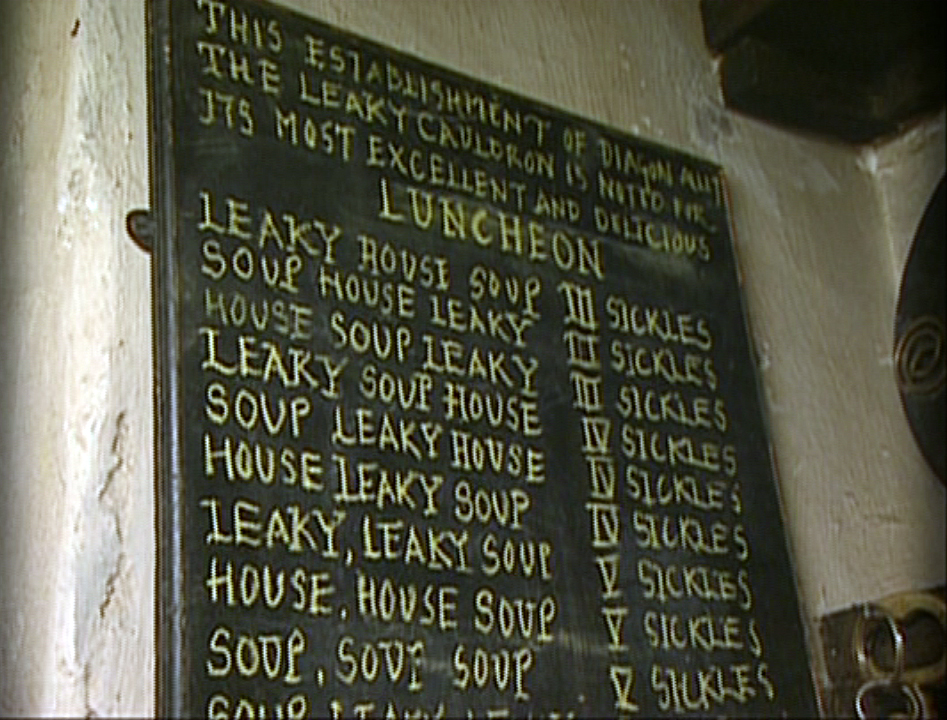 THIS ESTABLISHMENT OF DIAGON ALLEY
THE LEAKY CAULDRON IS NOTED FOR
ITS MOST EXCELLENT AND DELICIOUS
LUNCHEON
LEAKY HOUSE SOUP III SICKLES
SOUP HOUSE LEAKY III SICKLES
HOUSE SOUP LEAKY III SICKLES
LEAKY SOUP HOUSE IV SICKLES
SOUP LEAKY HOUSE IV SICKLES
HOUSE LEAKY SOUP IV SICKLES
LEAKY, LEAKY SOUP V SICKLES
HOUSE, HOUSE SOUP V SICKLES
SOUP, SOUP SOUP V SICKLES
SOUP LEAKY